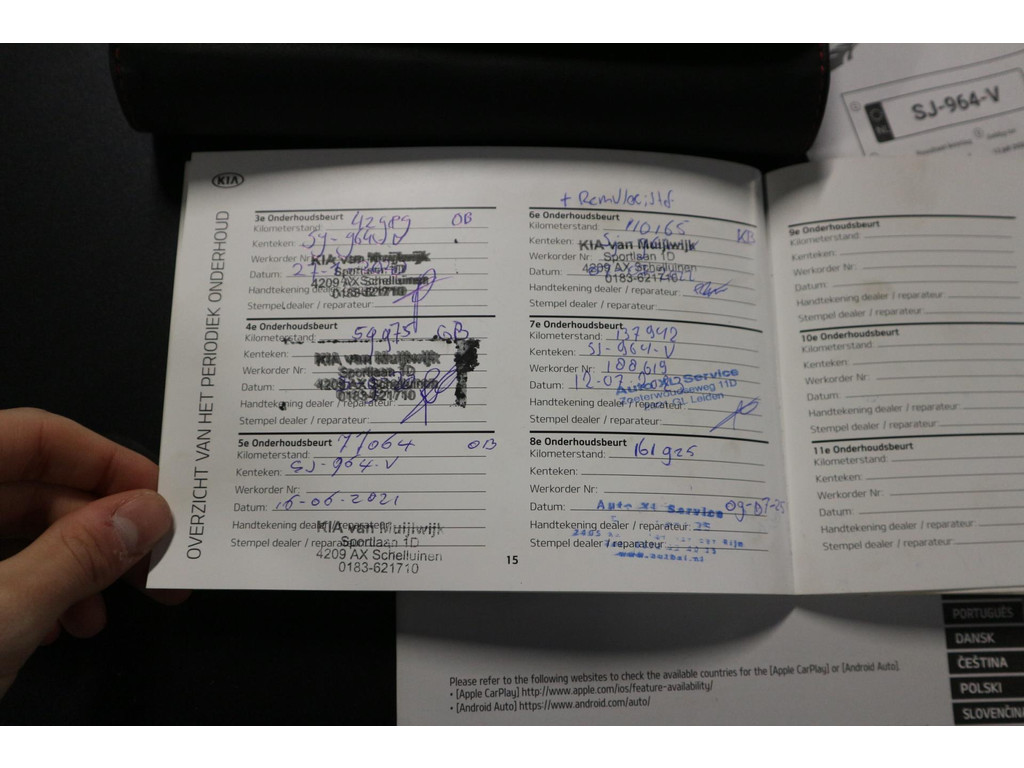 SJ-964-V
NL
KIA
OVERZICHT VAN HET PERIODIEK ONDERHOUD
3e Onderhoudsbeurt
Kilometerstand: OB
Kenteken: SJ-964-V
Werkorder Nr: KIA van Muijlwijk
Sportlaan 1D
Datum:
4209 AX Schelluinen
Handtekening dealer / reparateur:
0183-621710
Stempel dealer / reparateur:
4e Onderhoudsbeurt
Kilometerstand: 59975
Kenteken:
KIA van Muijlwijk
Werkorder Nr: Sportlaan 1D
Datum: 4209 AX Schelluinen
0183-621710
Handtekening dealer / reparateur:
Stempel dealer / reparateur:
5e Onderhoudsbeurt
Kilometerstand: 77064 OB
Kenteken: SJ-964-V
Werkorder Nr:
Datum: 16-06-2021
Handtekening dealer / reparateur:
KIA van Muijlwijk
Stempel dealer / reparateur:
Sportlaan 1D
4209 AX Schelluinen
0183-621710
+ Remvloeistof
6e Onderhoudsbeurt
Kilometerstand: 110165
Kenteken:
KIA van Muijlwijk
Werkorder Nr: Sportlaan 1D
Datum: 4209 AX Schelluinen
0183-621710
Handtekening dealer / reparateur:
Stempel dealer / reparateur:
7e Onderhoudsbeurt
Kilometerstand: 137942
Kenteken: SJ-964-V
Werkorder Nr: 188619
Datum: 12-07-
Auto XL Service
Zoeterwoudseweg 11D
Leiden
Handtekening dealer / reparateur:
Stempel dealer / reparateur:
8e Onderhoudsbeurt
Kilometerstand: 161925
Kenteken:
Werkorder Nr:
Datum: Auto Xl Service 09-07-25
Handtekening dealer / reparateur:
Stempel dealer / reparateur:
15
9e Onderhoudsbeurt
Kilometerstand:
Kenteken:
Werkorder Nr:
Datum:
Handtekening dealer / reparateur:
Stempel dealer / reparateur:
10e Onderhoudsbeurt
Kilometerstand:
Kenteken:
Werkorder Nr:
Datum:
Handtekening dealer / reparateur:
Stempel dealer / reparateur:
11e Onderhoudsbeurt
Kilometerstand:
Kenteken:
Werkorder Nr:
Datum:
Handtekening dealer / reparateur:
Stempel dealer / reparateur:
Please refer to the following websites to check the available countries for the [Apple CarPlay] or [Android Auto].
• [Apple CarPlay] http://www.apple.com/ios/feature-availability/
• [Android Auto] https://www.android.com/auto/
PORTUGUÊS
DANSK
ČEŠTINA
POLSKI
SLOVENČINA